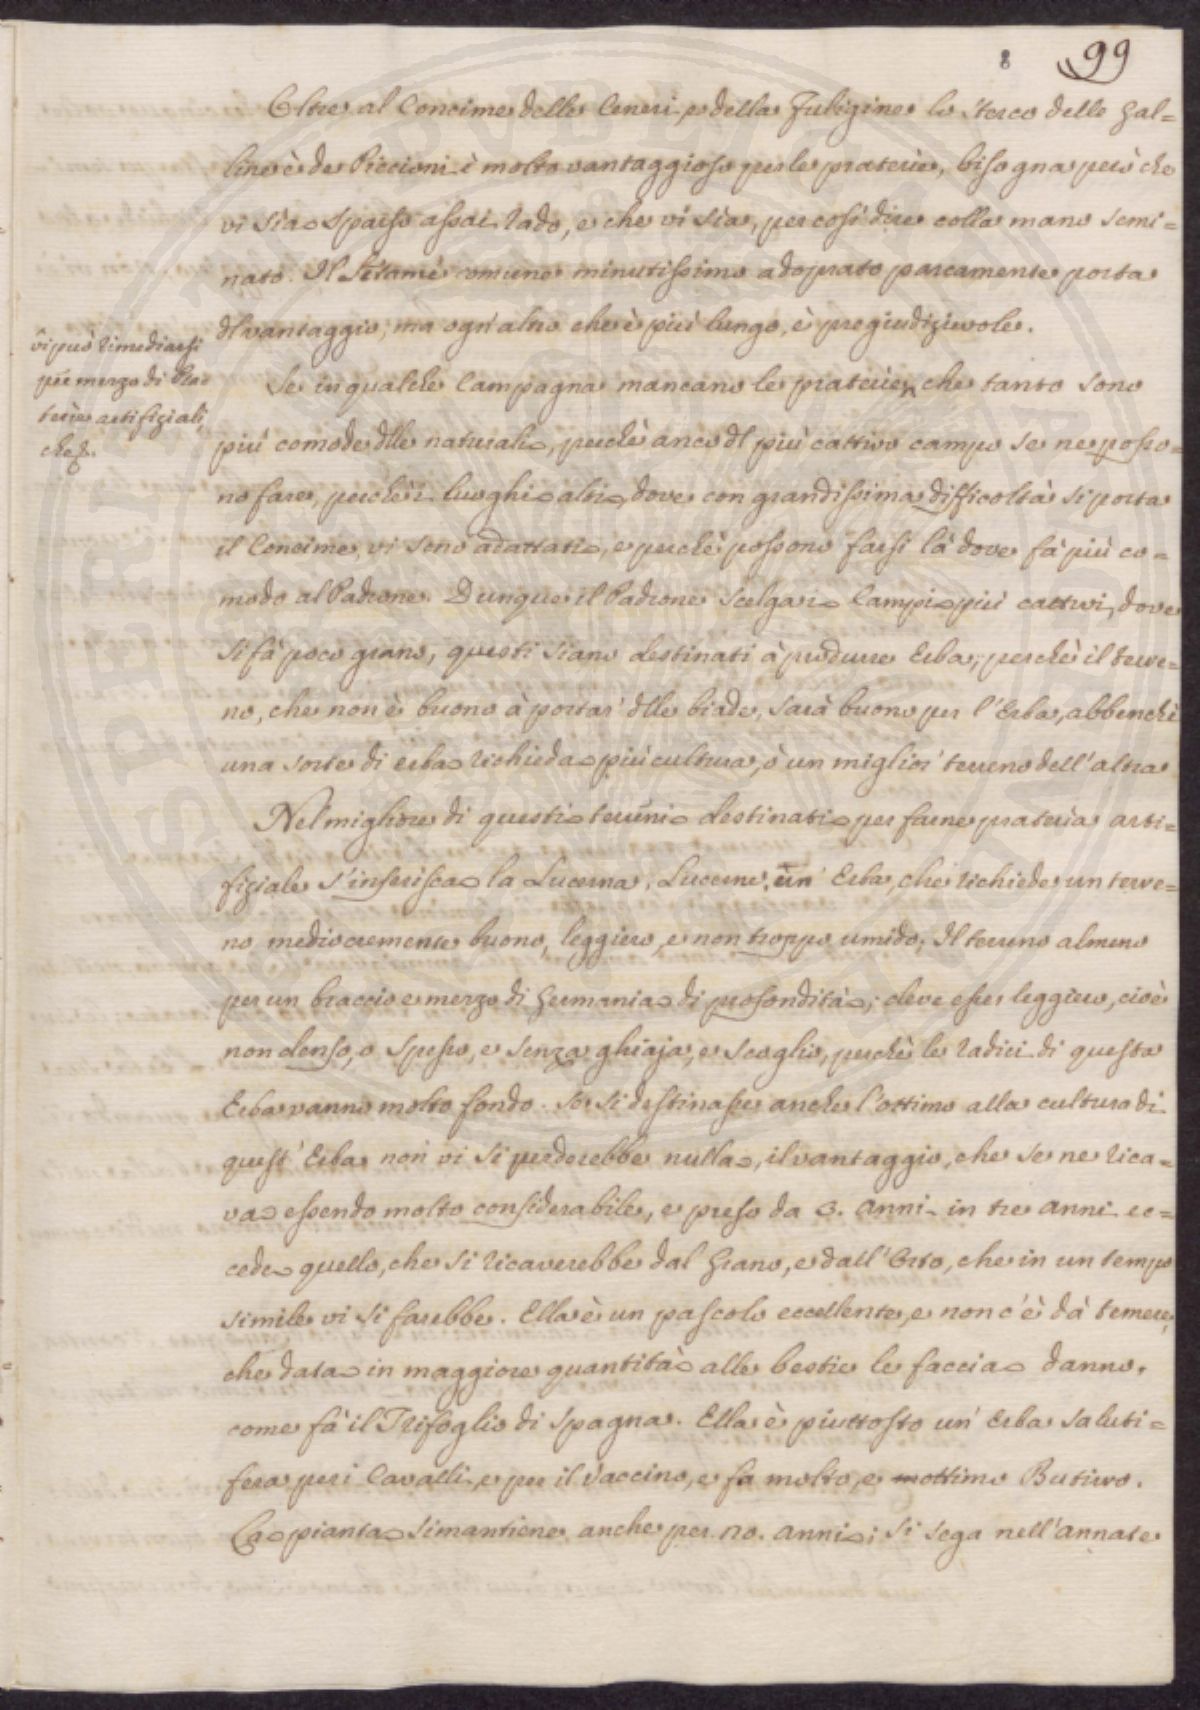 8 99
Oltre al Concime delle Ceneri, e della Fuligine lo sterco delle Gal=
line è de Piccioni è molto vantaggioso per le praterìe, bisogna però che
vi sia sparso assai rado, e che vi sia, per così dire colla mano semi=
nato. Il letame comune minutissimo adoprato parcamente porta
dl vantaggio, ma ogn'altro che è più lungo, è pregiudizievole.
vi può rimediarsi
per mezzo di Pra=
terìe artifiziali,
che
Se in qualche Campagna mancano le praterìe, che tanto sono
più comode dlle naturali, perchè anco dl più cattivo campo se ne posso=
no fare, perchè i luoghi alti, dove con grandissima difficoltà si porta
il Concime, vi sono adattati, e perchè possono farsi là dove fà più co=
modo al Padrone. Dunque il Padrone scelga i Campi più cattivi, dove
si fà poco grano, questi siano destinati à produrre Erba, perchè il terre=
no, che non è buono à portar' dlle biade, sarà buono per l'Erba, abbenchè
una sorte di erba richieda più cultura, ò un miglior' terreno dell'altra
Nel migliore di questi terreni destinati per farne praterìa arti=
fiziale s'inserisca la Lucerna, Lucerne, un' Erba, che richiede un terre=
no mediocremente buono, leggiero, e non troppo umido; Il terreno almeno
per un braccio e mezzo di Germania di profondità; deve esser leggiero, cioè
non denso, o spesso, e senza ghiaja, e scoglio, perchè le radici di questa
Erba vanno molto fondo. Se si destinasse anche l'ottimo alla cultura di
quest' Erba non vi si perderebbe nulla, il vantaggio, che se ne rica=
va essendo molto considerabile, e preso da 3. anni in tre anni ec=
cede quello, che si ricaverebbe dal Grano, e dall'Orto, che in un tempo
simile vi si farebbe. Ella è un pascolo eccellente, e non c'è dà temere,
che data in maggiore quantità alle bestie le faccia danno,
come fà il Trifoglio di Spagna. Ella è piuttosto un' Erba saluti=
fera per i Cavalli, e per il vaccino, e fa molto, e ottimo Butirro.
La pianta si mantiene anche per 20. anni; si sega nell'annate